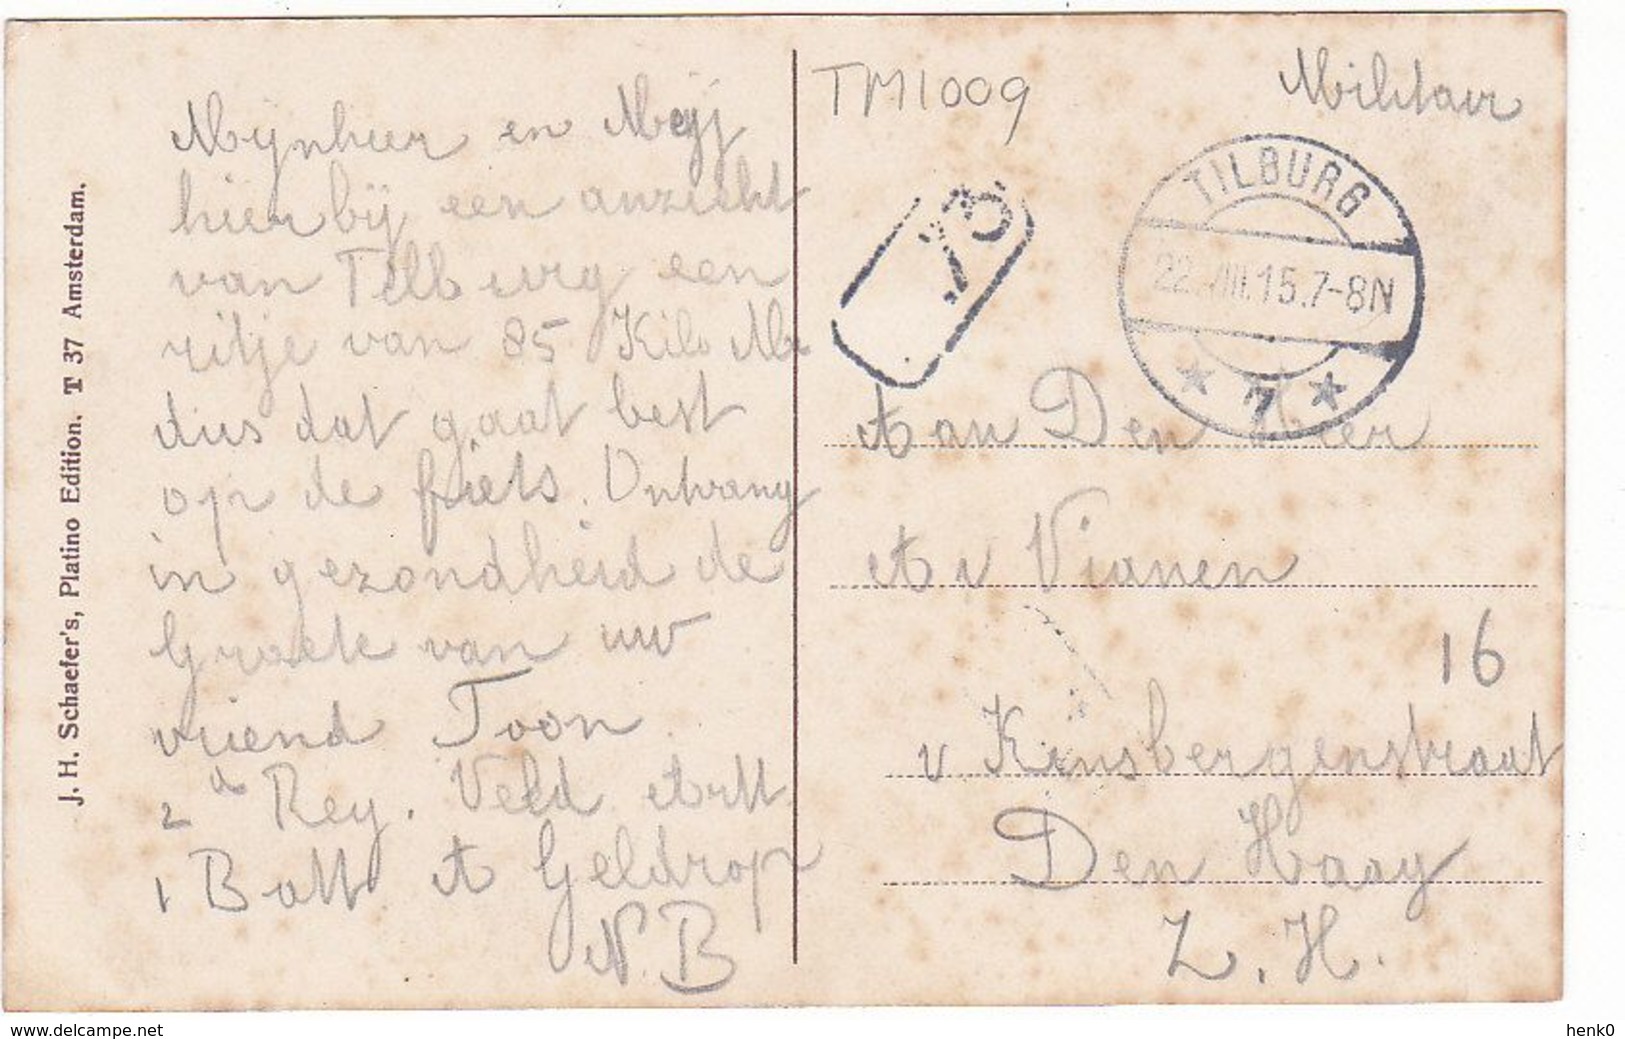 J. H. Schaefer's, Platino Edition. T 37 Amsterdam.
Mijnheer en Mejj
hierbij een anzicht
van Tilburg een
ritje van 85 Kilo Me
dus dat gaat best
op de fiets. Ontvang
in gezondheid de
Groete van uw
vriend Toon
2de Rey. Veld Artt
1 Batt. A Geldrop
N. B
TM1009
Militair
73
TILBURG
22.VIII.15.7-8N
7
Aan Den Heer
A v Vianen
16
v Kinsbergenstraat
Den Haag
Z. H.
www.delcampe.net
henk0